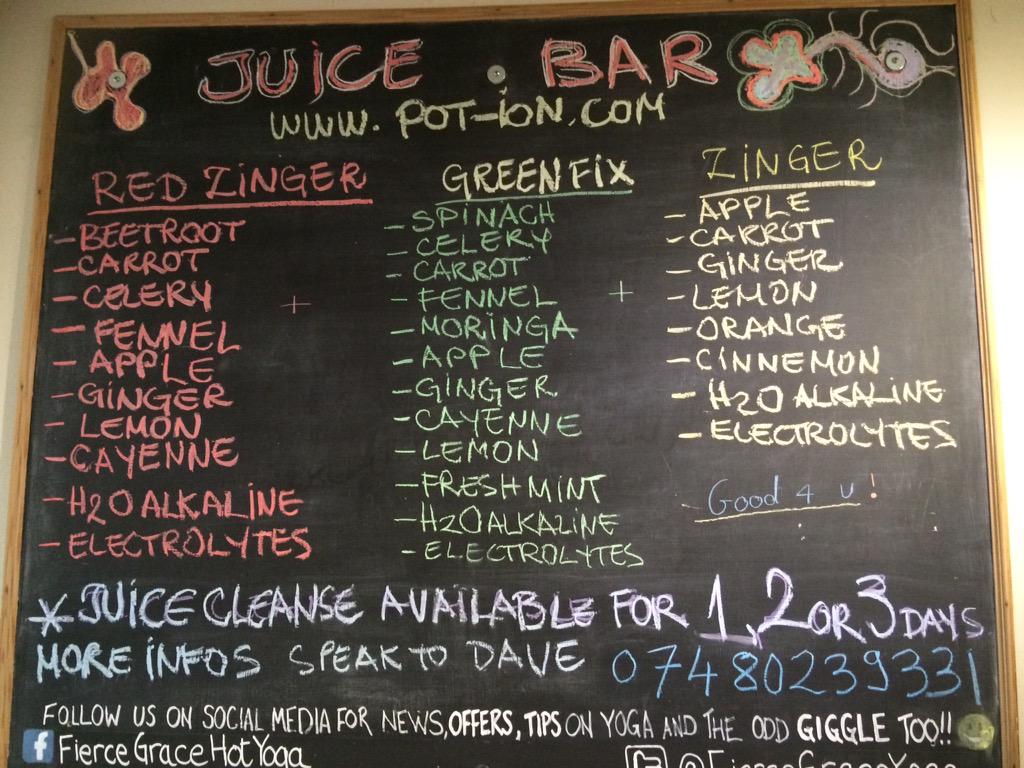 JUICE BAR
WWW.POT-ION.COM
RED ZINGER
- BEETROOT
- CARROT
- CELERY
- FENNEL
- APPLE
- GINGER
- LEMON
- CAYENNE
- H2O ALKALINE
- ELECTROLYTES
+
GREEN FIX
- SPINACH
- CELERY
- CARROT
- FENNEL
- MORINGA
- APPLE
- GINGER
- CAYENNE
- LEMON
- FRESH MINT
- H2O ALKALINE
- ELECTROLYTES
+
ZINGER
- APPLE
- CARROT
- GINGER
- LEMON
- ORANGE
- CINNEMON
- H2O ALKALINE
- ELECTROLYTES
- Good 4 u!
* JUICE CLEANSE AVAILABLE FOR 1, 2 OR 3 DAYS
MORE INFOS SPEAK TO DAVE 07480239331
FOLLOW US ON SOCIAL MEDIA FOR NEWS, OFFERS, TIPS ON YOGA AND THE ODD GIGGLE TOO!!
f FierceGraceHotYoga @FierceGraceYoga